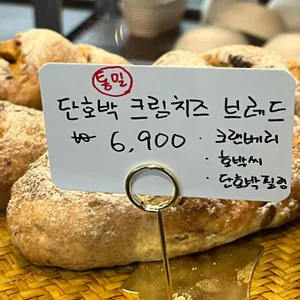 통밀
단호박 크림치즈 브레드
₩ 6,900
· 크랜베리
· 호박씨
· 단호박필링